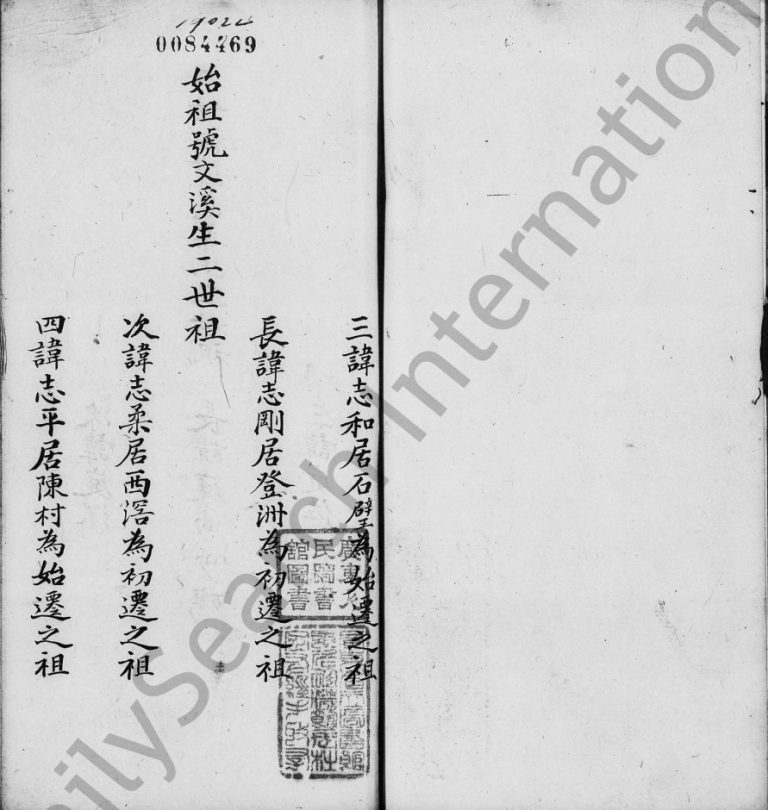 19024
0084469
三諱志和居石壁為始遷之祖
長諱志剛居登洲為初遷之祖
始祖號文溪生二世祖
次諱志柔居西滘為初遷之祖
四諱志平居陳村為始遷之祖
民圖書
館圖書
FamilySearch International